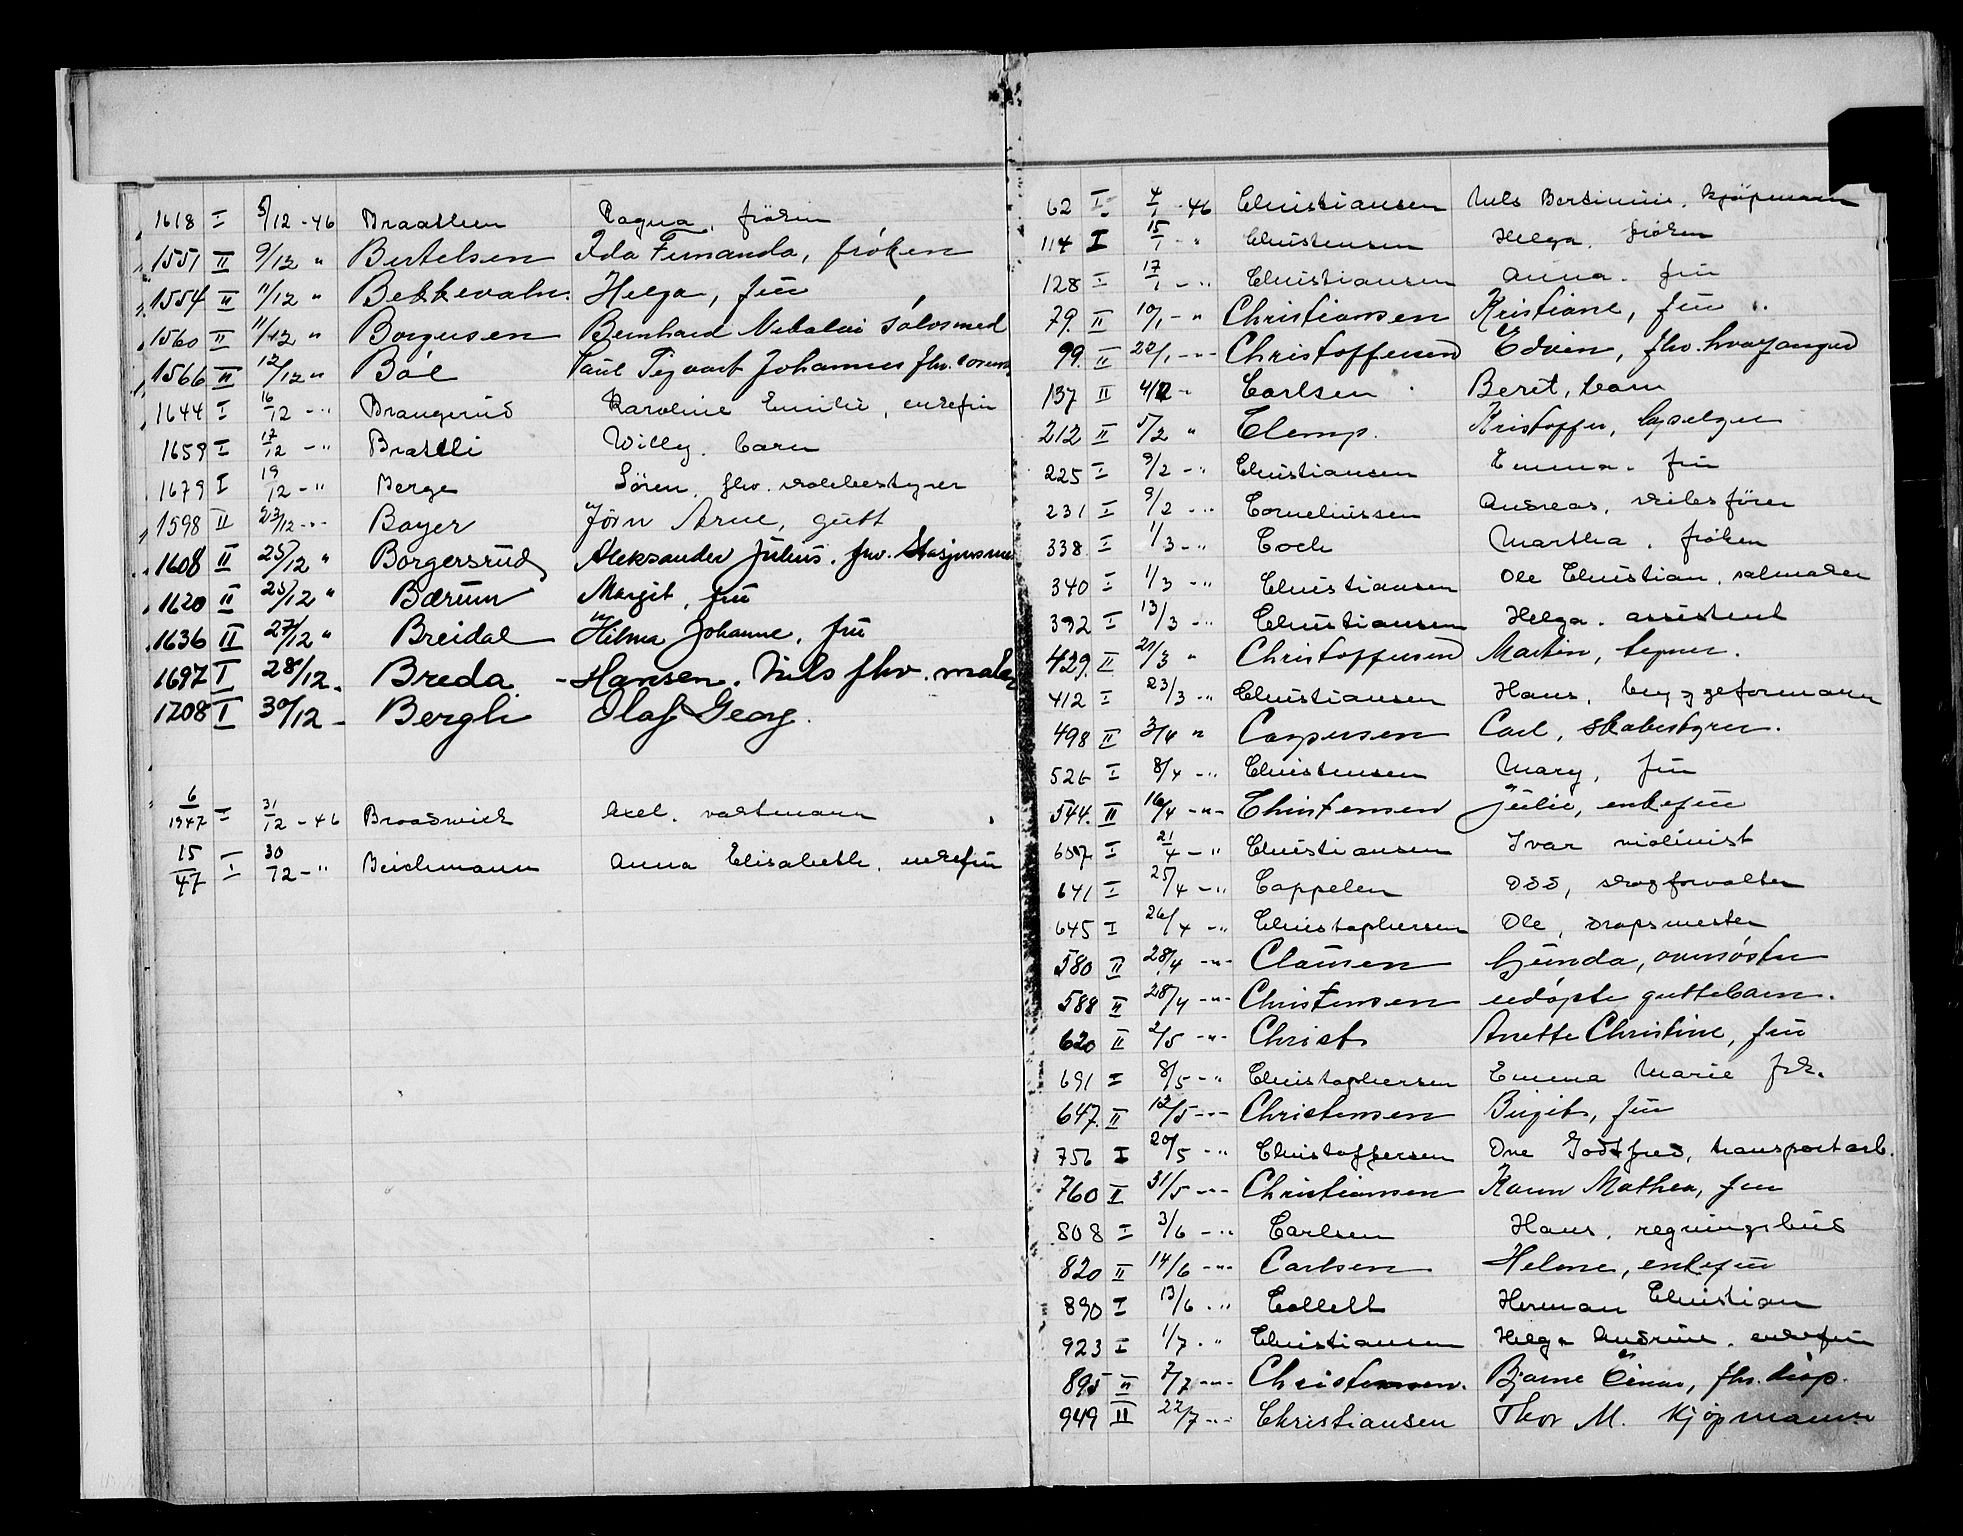 1618 I 5/12 - 46 Braathen Ragna, frøken
1551 II 9/12 " Bertelsen Ida Fernanda, frøken
1554 II 11/12 " Bekkevahr. Helga, frü
1560 II 11/12 " Borgersen Bernhard Nikolai sølvsmed
1566 II 12/12 " Bøe Paul Sigvart Johannes fhv.
1644 I 16/12 - " Brangerud Karoline Emilie, enkefrü
1659 I 17/12 - " Bratlli Willy. barn
1679 I 19/12 - " Berge Søren, fhv. skolebestyrer
1598 II 23/12 - " Bayer Jørn Arne, gutt
1608 II 25/12 " Borgersrud Aleksander Julius, fhv. Stasjonsm
1620 II 25/12 " Bærum Margit, frü
1636 II 27/12 " Breidal Hilma Johanne, frü
1697 I 28/12 - Breda - Hansen. Nils fhv. maler
1708 I 30/12 - Bergli Olaf Georg.
6/1947 I 31/12 - 46 Braadwick Axel. vaktmann
15/47 I 30/12 - " Beichmann Anna Elisabeth, enkefrü
62 I 4/1 - 46 Christiansen Nils Bertinius, kjøpmann
114 I 15/1 - " Christensen Helga, frøken
128 I 17/1 - " Christiansen Anna. frü
79. II 10/1 - " Christiansen Kristiane, frü
99. II 22/1 - " Christoffersen Edvin, fhv.
137 II 4/2 " Carlsen Beret, barn
212 II 5/2 " Clemp. Kristoffer,
225 I 9/2 - " Christiansen Emma. frü
231 I 9/2 - " Corneliussen Andreas, skibsfører
338 I 1/3 - " Coch Martha, frøken
340 I 1/3 - " Christiansen Ole Christian, salmaker
392 I 13/3 - " Christiansen Helga. assistent
429. II 20/3 " Christoffersen Martin, tegner.
412 I 23/3 - " Christiansen Hans, bryggeformann
498 II 3/4 " Caspersen Carl, skolebestyrer.
526 I 8/4 - " Christensen Mary, frü
544. II 16/4 - " Christensen Julie, enkefrü
607 I 21/4 - " Christiansen Ivar violinist
641 I 25/4 - " Cappelen Odd, skogforvalter
645 I 26/4 - " Christophersen Ole, dropsmester
580 II 28/4 - " Clausen Gunda, oversøster
588 II 28/4 - " Christensen udøpte guttebarn.
620 II 2/5 - " Christ Anette Christine, frü
691 I 8/5 - " Christophersen Emma Marie frk.
647. II 12/5 - " Christensen Birgit, frü
756 I 20/5 - " Christoffersen Ove Godtfred, transportarb.
760 II 31/5 - " Christiansen Karen Mathea, frü
808 I 3/6 - " Carlsen Hans, regningsbud
820 II 14/6 - " Carlsen Helene, enkefrü
890 I 13/6 - " Collett Herman Christian
923 I 1/7 - " Christiansen Helga Andrine. enkefrü
895 II 7/7 - " Christensen. Bjarne Einar, fhv. disp.
949 II 22/7 - " Christiansen Thor M. Kjøpmann